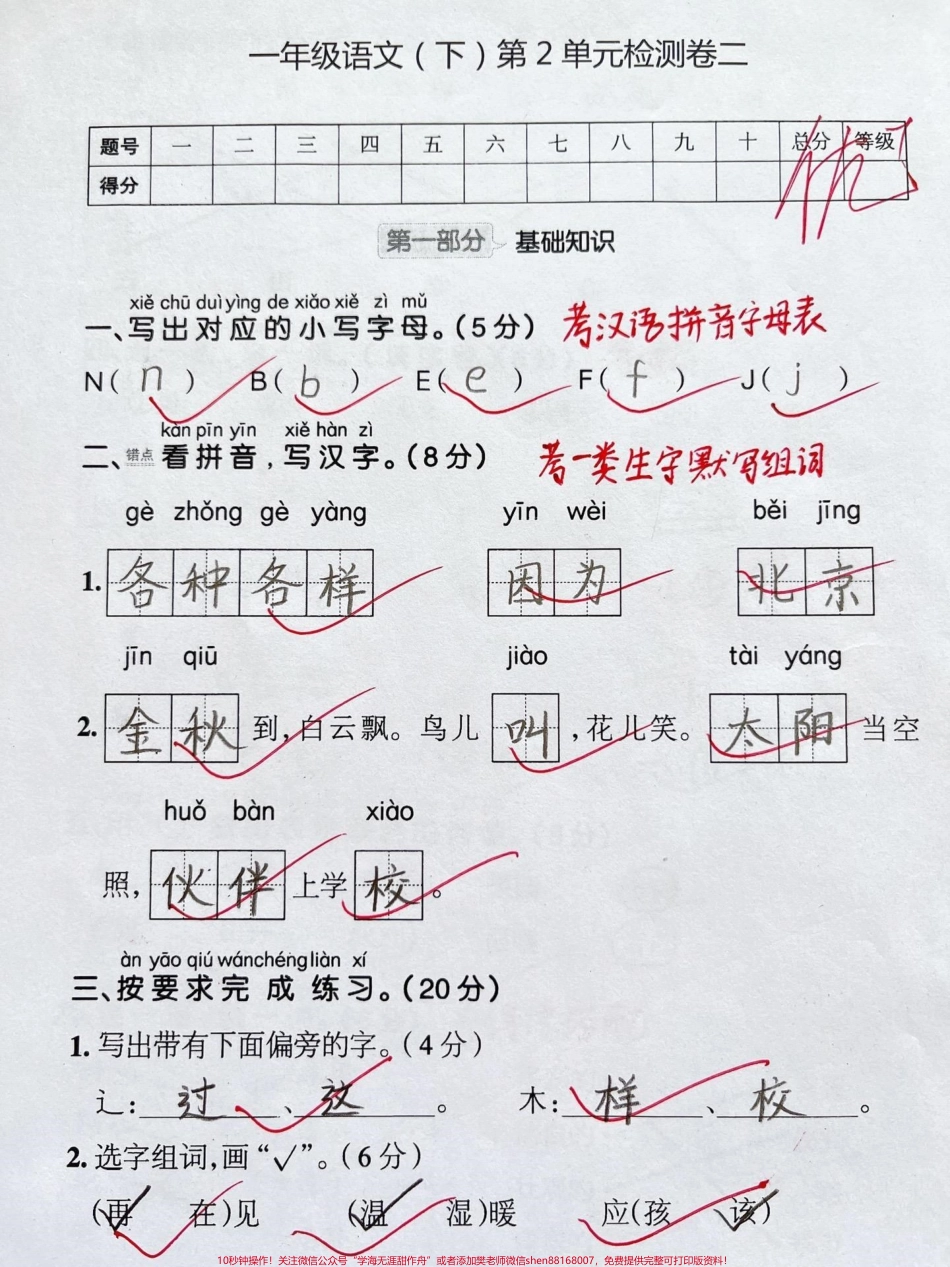 一年级语文（下）第2单元检测卷二
题号 一 二 三 四 五 六 七 八 九 十 总分 等级
得分 优
第一部分 基础知识
xiě chū duì yìng de xiǎo xiě zì mǔ
一、写出对应的小写字母。（5分） 考汉语拼音字母表
N( n ) B( b ) E( e ) F( f ) J( j )
kàn pīn yīn xiě hàn zì
二、错点 看拼音，写汉字。（8分） 考一类生字默写组词
gè zhǒng gè yàng yīn wèi běi jīng
1. 各种各样 因为 北京
jīn qiū jiào tài yáng
2. 金秋 到，白云飘。鸟儿 叫 ，花儿笑。 太阳 当空
huǒ bàn xiào
照， 伙伴 上学 校 。
àn yāo qiú wán chéng liàn xí
三、按要求完成练习。（20分）
1. 写出带有下面偏旁的字。（4分）
辶： 过 、 这 。 木： 样 、 校 。
2. 选字组词，画“√”。（6分）
（再√ 在）见 （温√ 湿）暖 应（孩 该√）
10秒钟操作！关注微信公众号“学海无涯甜作舟”或者添加樊老师微信shen88168007，免费提供完整可打印版资料！